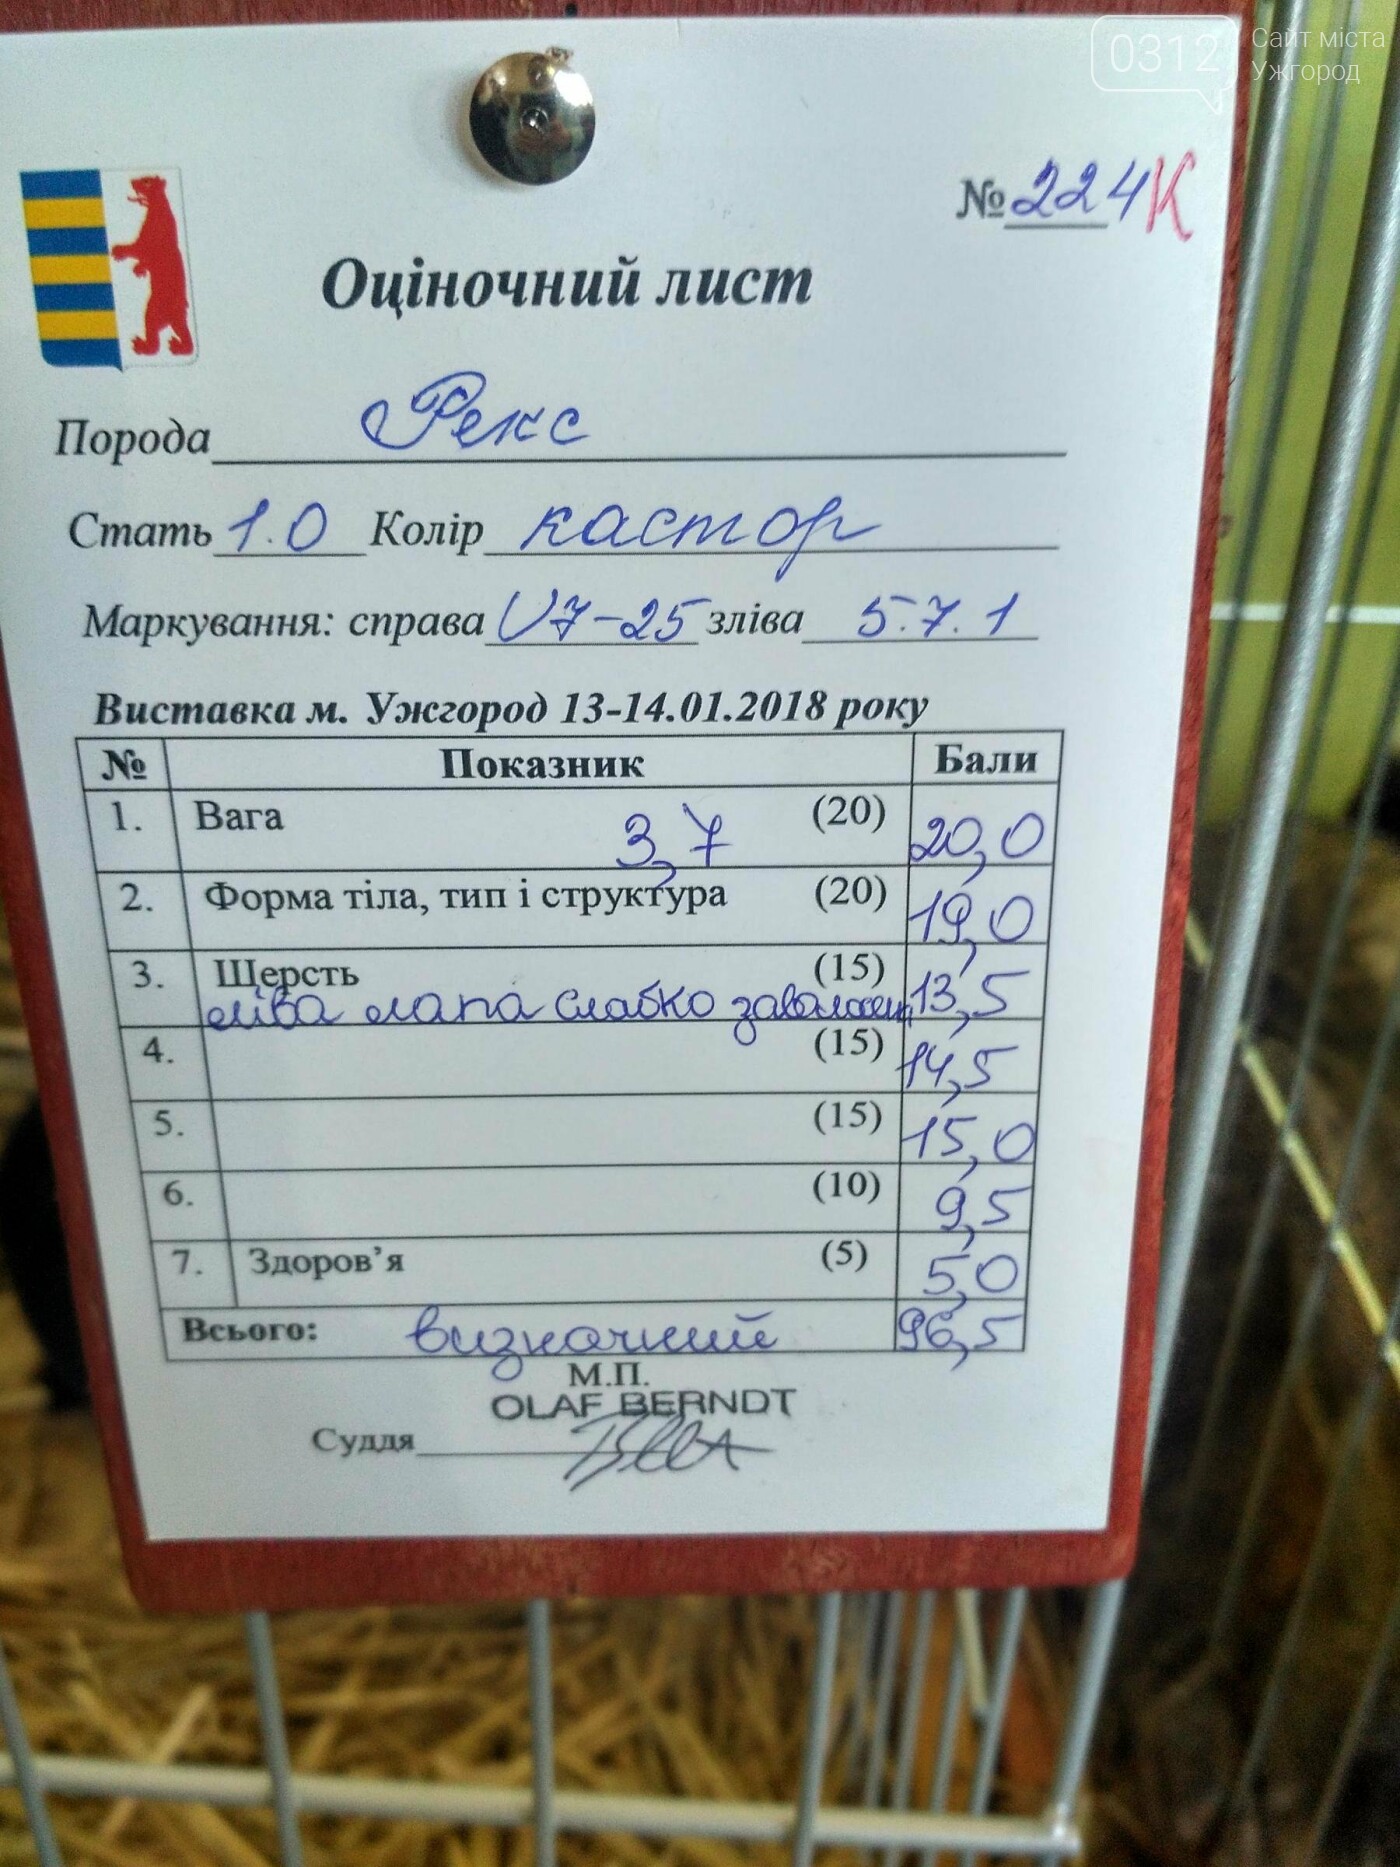 0312 Сайт міста
Ужгород
№ 224К
Оціночний лист
Порода Рекс
Стать 1.0 Колір кастор
Маркування: справа U7-25 зліва 5.7.1
Виставка м. Ужгород 13-14.01.2018 року
№ Показник Бали
1. Вага 3,7 (20) 20,0
2. Форма тіла, тип і структура (20) 19,0
3. Шерсть (15) 13,5
ліва лапа слабко
4. (15) 14,5
5. (15) 15,0
6. (10) 9,5
7. Здоров’я (5) 5,0
Всього: визначний 96,5
М.П.
OLAF BERNDT
Суддя